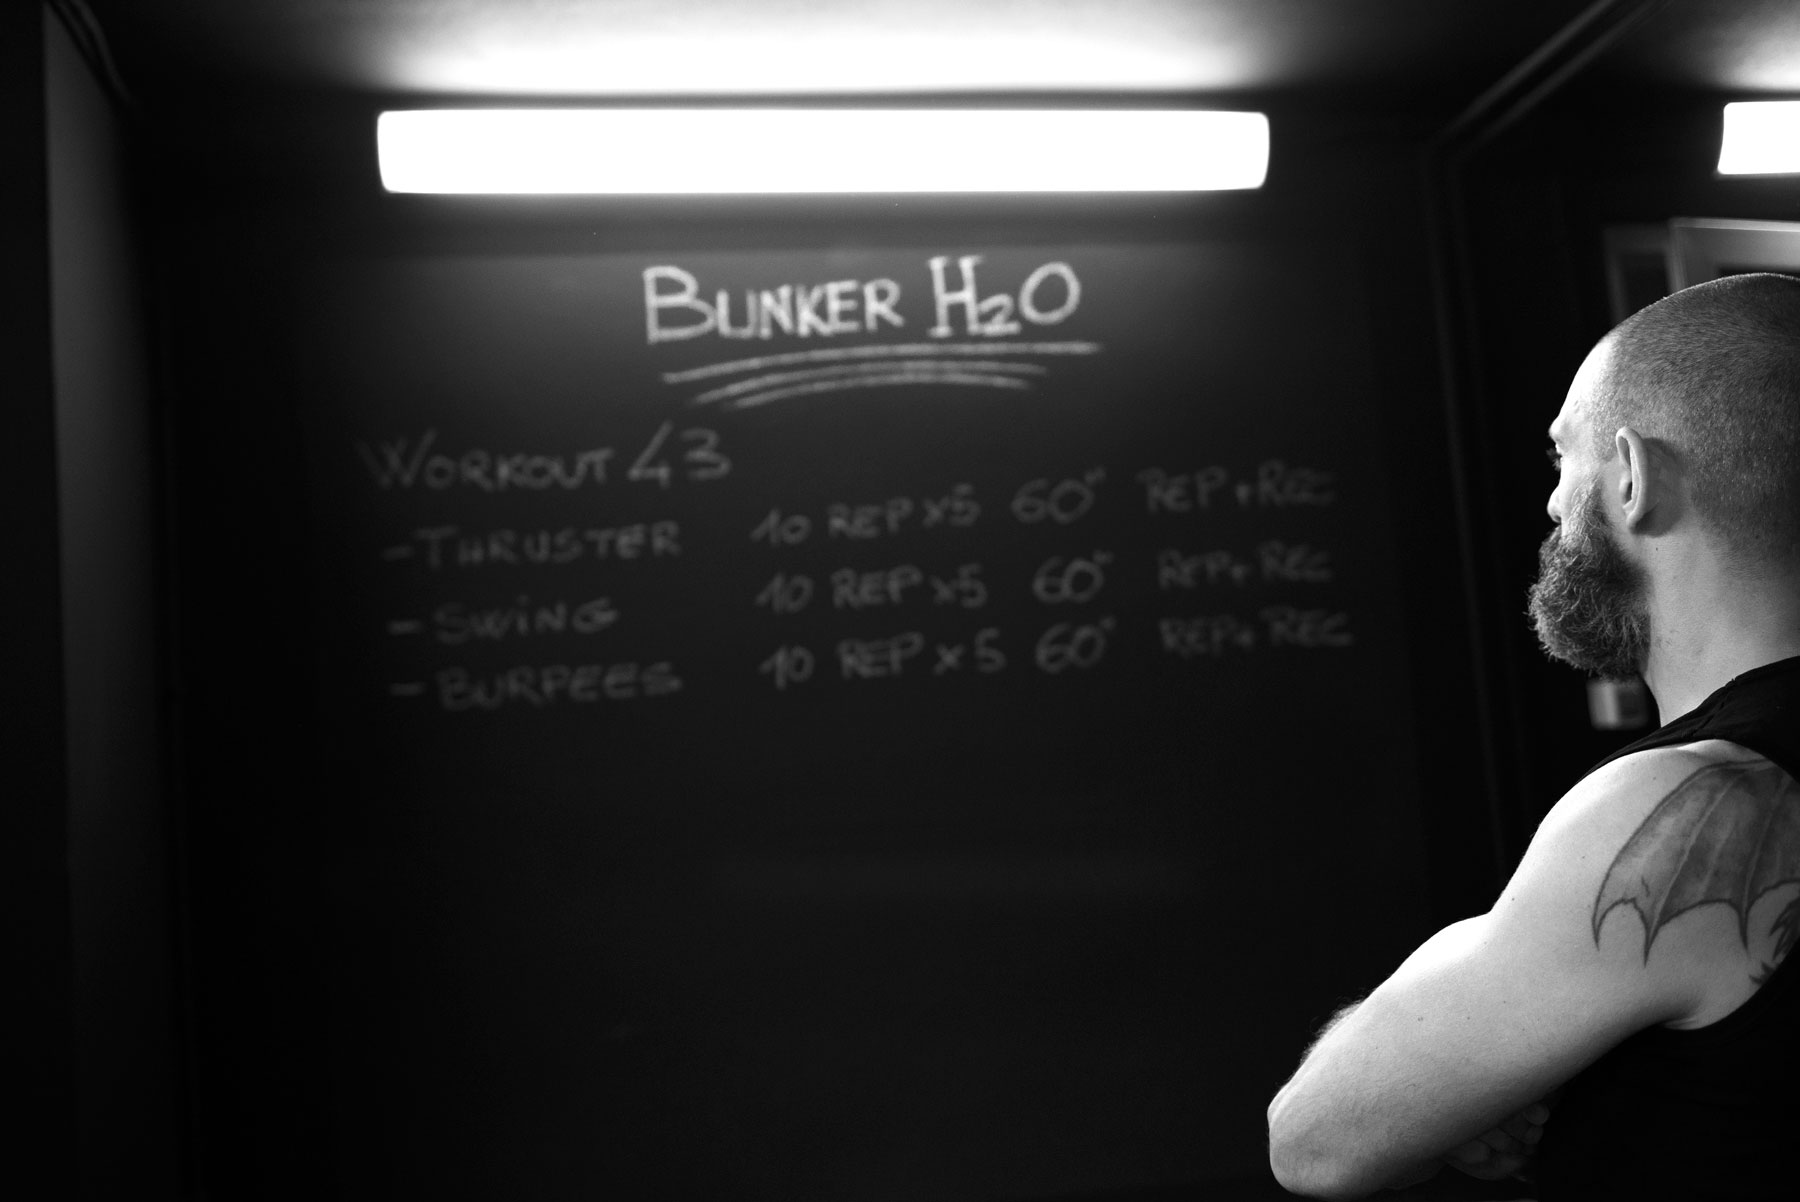 BUNKER H2O
WORKOUT 43
- THRUSTER 10 REP x5 60" REP+REC
- SWING 10 REP x5 60" REP+REC
- BURPEES 10 REP x5 60" REP+REC